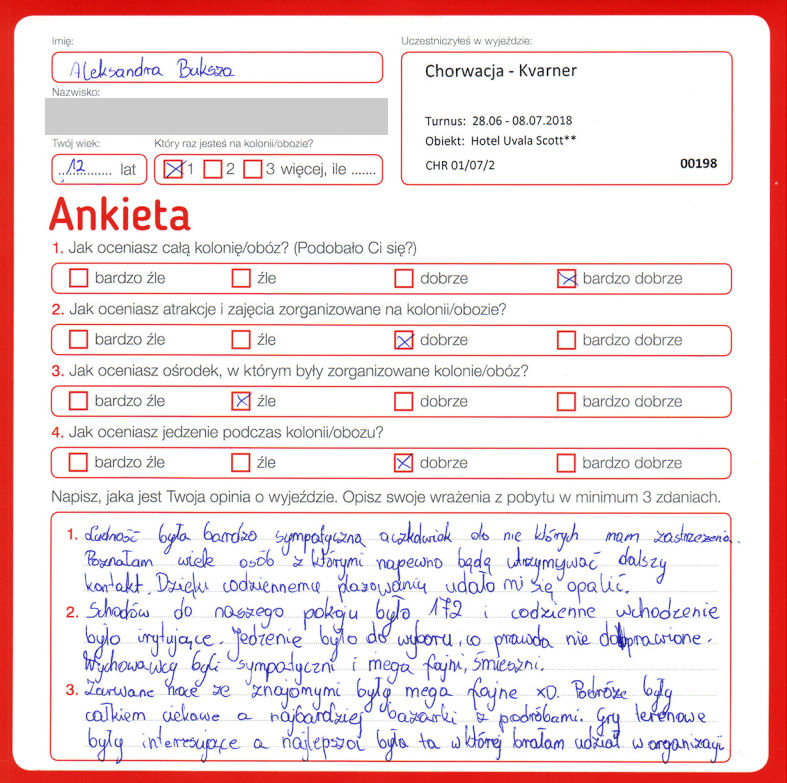 Imię:
Uczestniczyłeś w wyjeździe:
Aleksandra Buksza
Chorwacja - Kvarner
Nazwisko:
Turnus: 28.06 - 08.07.2018
Obiekt: Hotel Uvala Scott**
CHR 01/07/2
00198
Twój wiek:
Który raz jesteś na kolonii/obozie?
12 lat
1 2 3 więcej, ile .......
Ankieta
1. Jak oceniasz całą kolonię/obóz? (Podobało Ci się?)
bardzo źle źle dobrze bardzo dobrze
2. Jak oceniasz atrakcje i zajęcia zorganizowane na kolonii/obozie?
bardzo źle źle dobrze bardzo dobrze
3. Jak oceniasz ośrodek, w którym były zorganizowane kolonie/obóz?
bardzo źle źle dobrze bardzo dobrze
4. Jak oceniasz jedzenie podczas kolonii/obozu?
bardzo źle źle dobrze bardzo dobrze
Napisz, jaka jest Twoja opinia o wyjeździe. Opisz swoje wrażenia z pobytu w minimum 3 zdaniach.
1. Ludność była bardzo sympatyczna aczkolwiek do nie których mam zastrzeżenia.
Poznałam wiele osób z którymi napewno będę utrzymywać dalszy
kontakt. Dzięki codziennemu plażowaniu udało mi się opalić.
2. Schodów do naszego pokoju było 172 i codzienne wchodzenie
było irytujące. Jedzenie było do wyboru, co prawda nie doprawione.
Wychowawcy byli sympatyczni i mega fajni, śmieszni.
3. Zarwane noce ze znajomymi były mega fajne xD. Podróże były
całkiem ciekawe a najbardziej bazarki z podróbami. Gry terenowe
były interesujące a najlepsza była ta w której brałam udział w organizacji